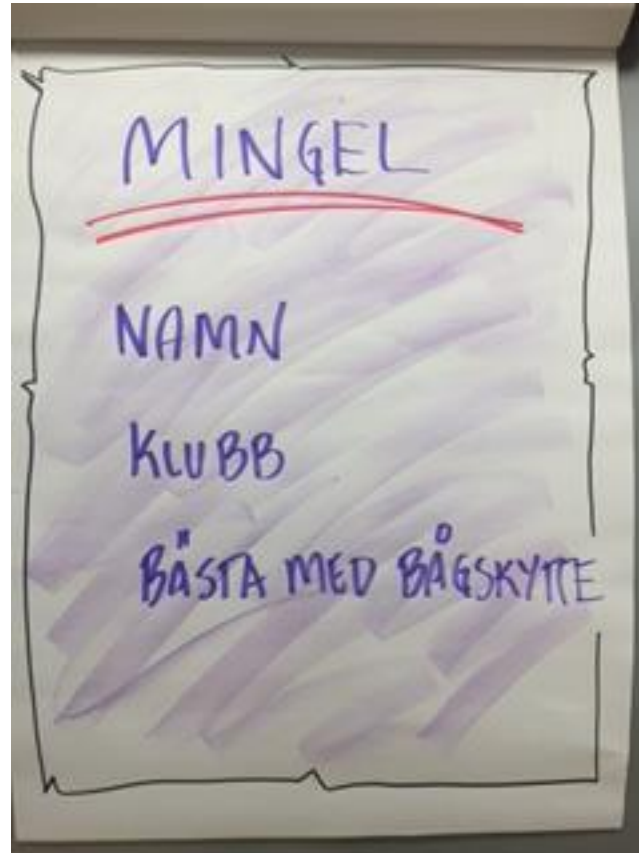 MINGEL
NAMN
KLUBB
BÄSTA MED BÅGSKYTTE